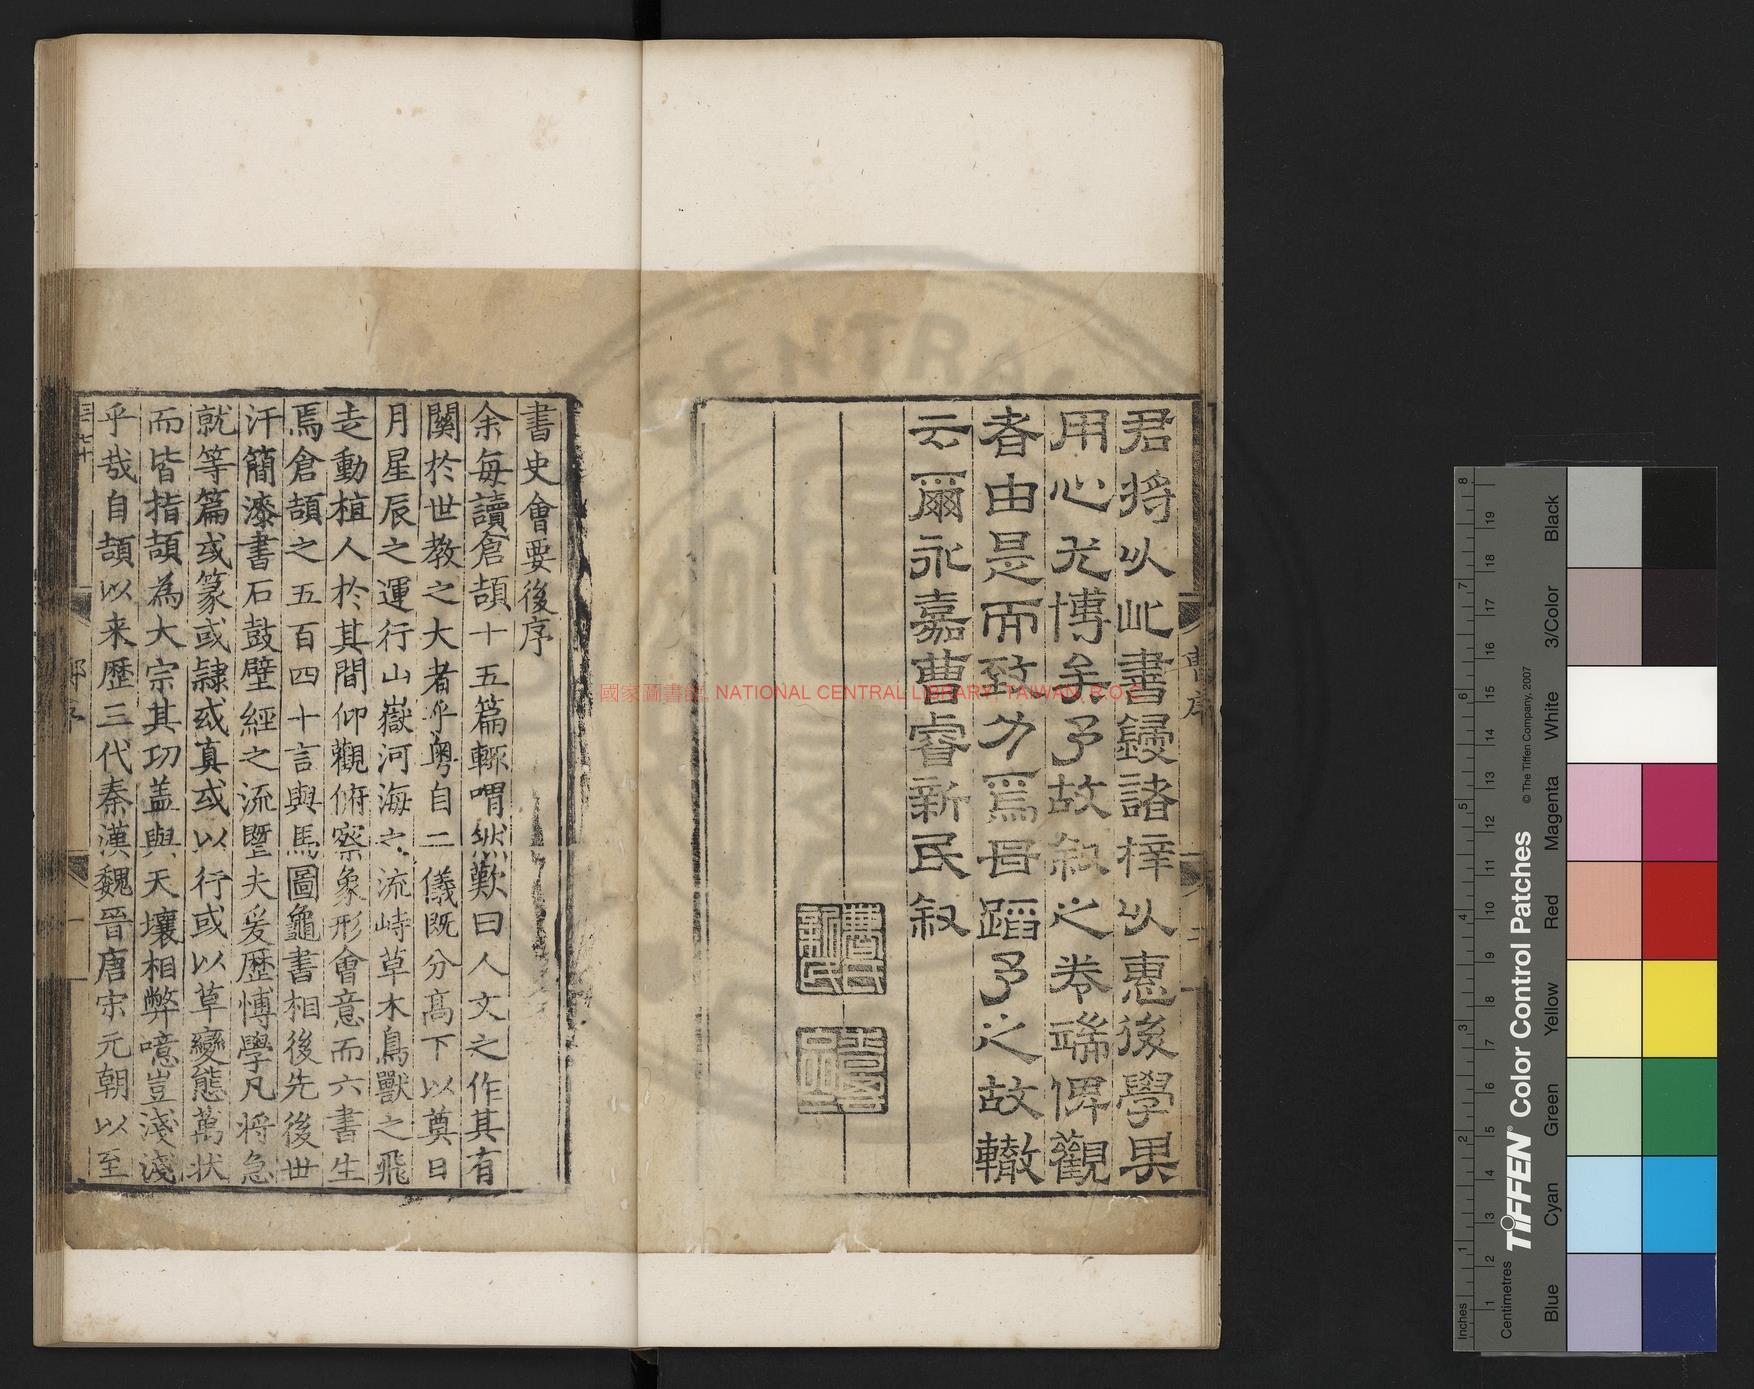 君將以此書鋟諸梓以惠後學果
用心尤博矣予故叙之卷端俾觀
者由是而致力焉毋蹈予之故轍
云爾永嘉曹睿新民叙
曹序
二
曹氏
新民
書史會要後序
余每讀倉頡十五篇輒喟然歎曰人文之作其有
關於世教之大者乎粤自二儀既分高下以奠日
月星辰之運行山嶽河海之流峙草木鳥獸之飛
走動植人於其間仰觀俯察象形會意而六書生
焉倉頡之五百四十言與馬圖龜書相後先後世
汗簡漆書石鼓壁經之流曁夫爰歷博學凡將急
就等篇或篆或隸或真或以行或以草變態萬状
而皆指頡為大宗其功盖與天壤相弊噫豈淺淺
乎哉自頡以来歷三代秦漢魏晉唐宋元朝以至
一
國家圖書館 NATIONAL CENTRAL LIBRARY, TAIWAN, R.O.C.
CENTRAL
Inches
Centimetres
1 2 3 4 5 6 7 8
1 2 3 4 5 6 7 8 9 10 11 12 13 14 15 16 17 18 19
TIFFEN® Color Control Patches
© The Tiffen Company, 2007
Blue
Cyan
Green
Yellow
Red
Magenta
White
3/Color
Black